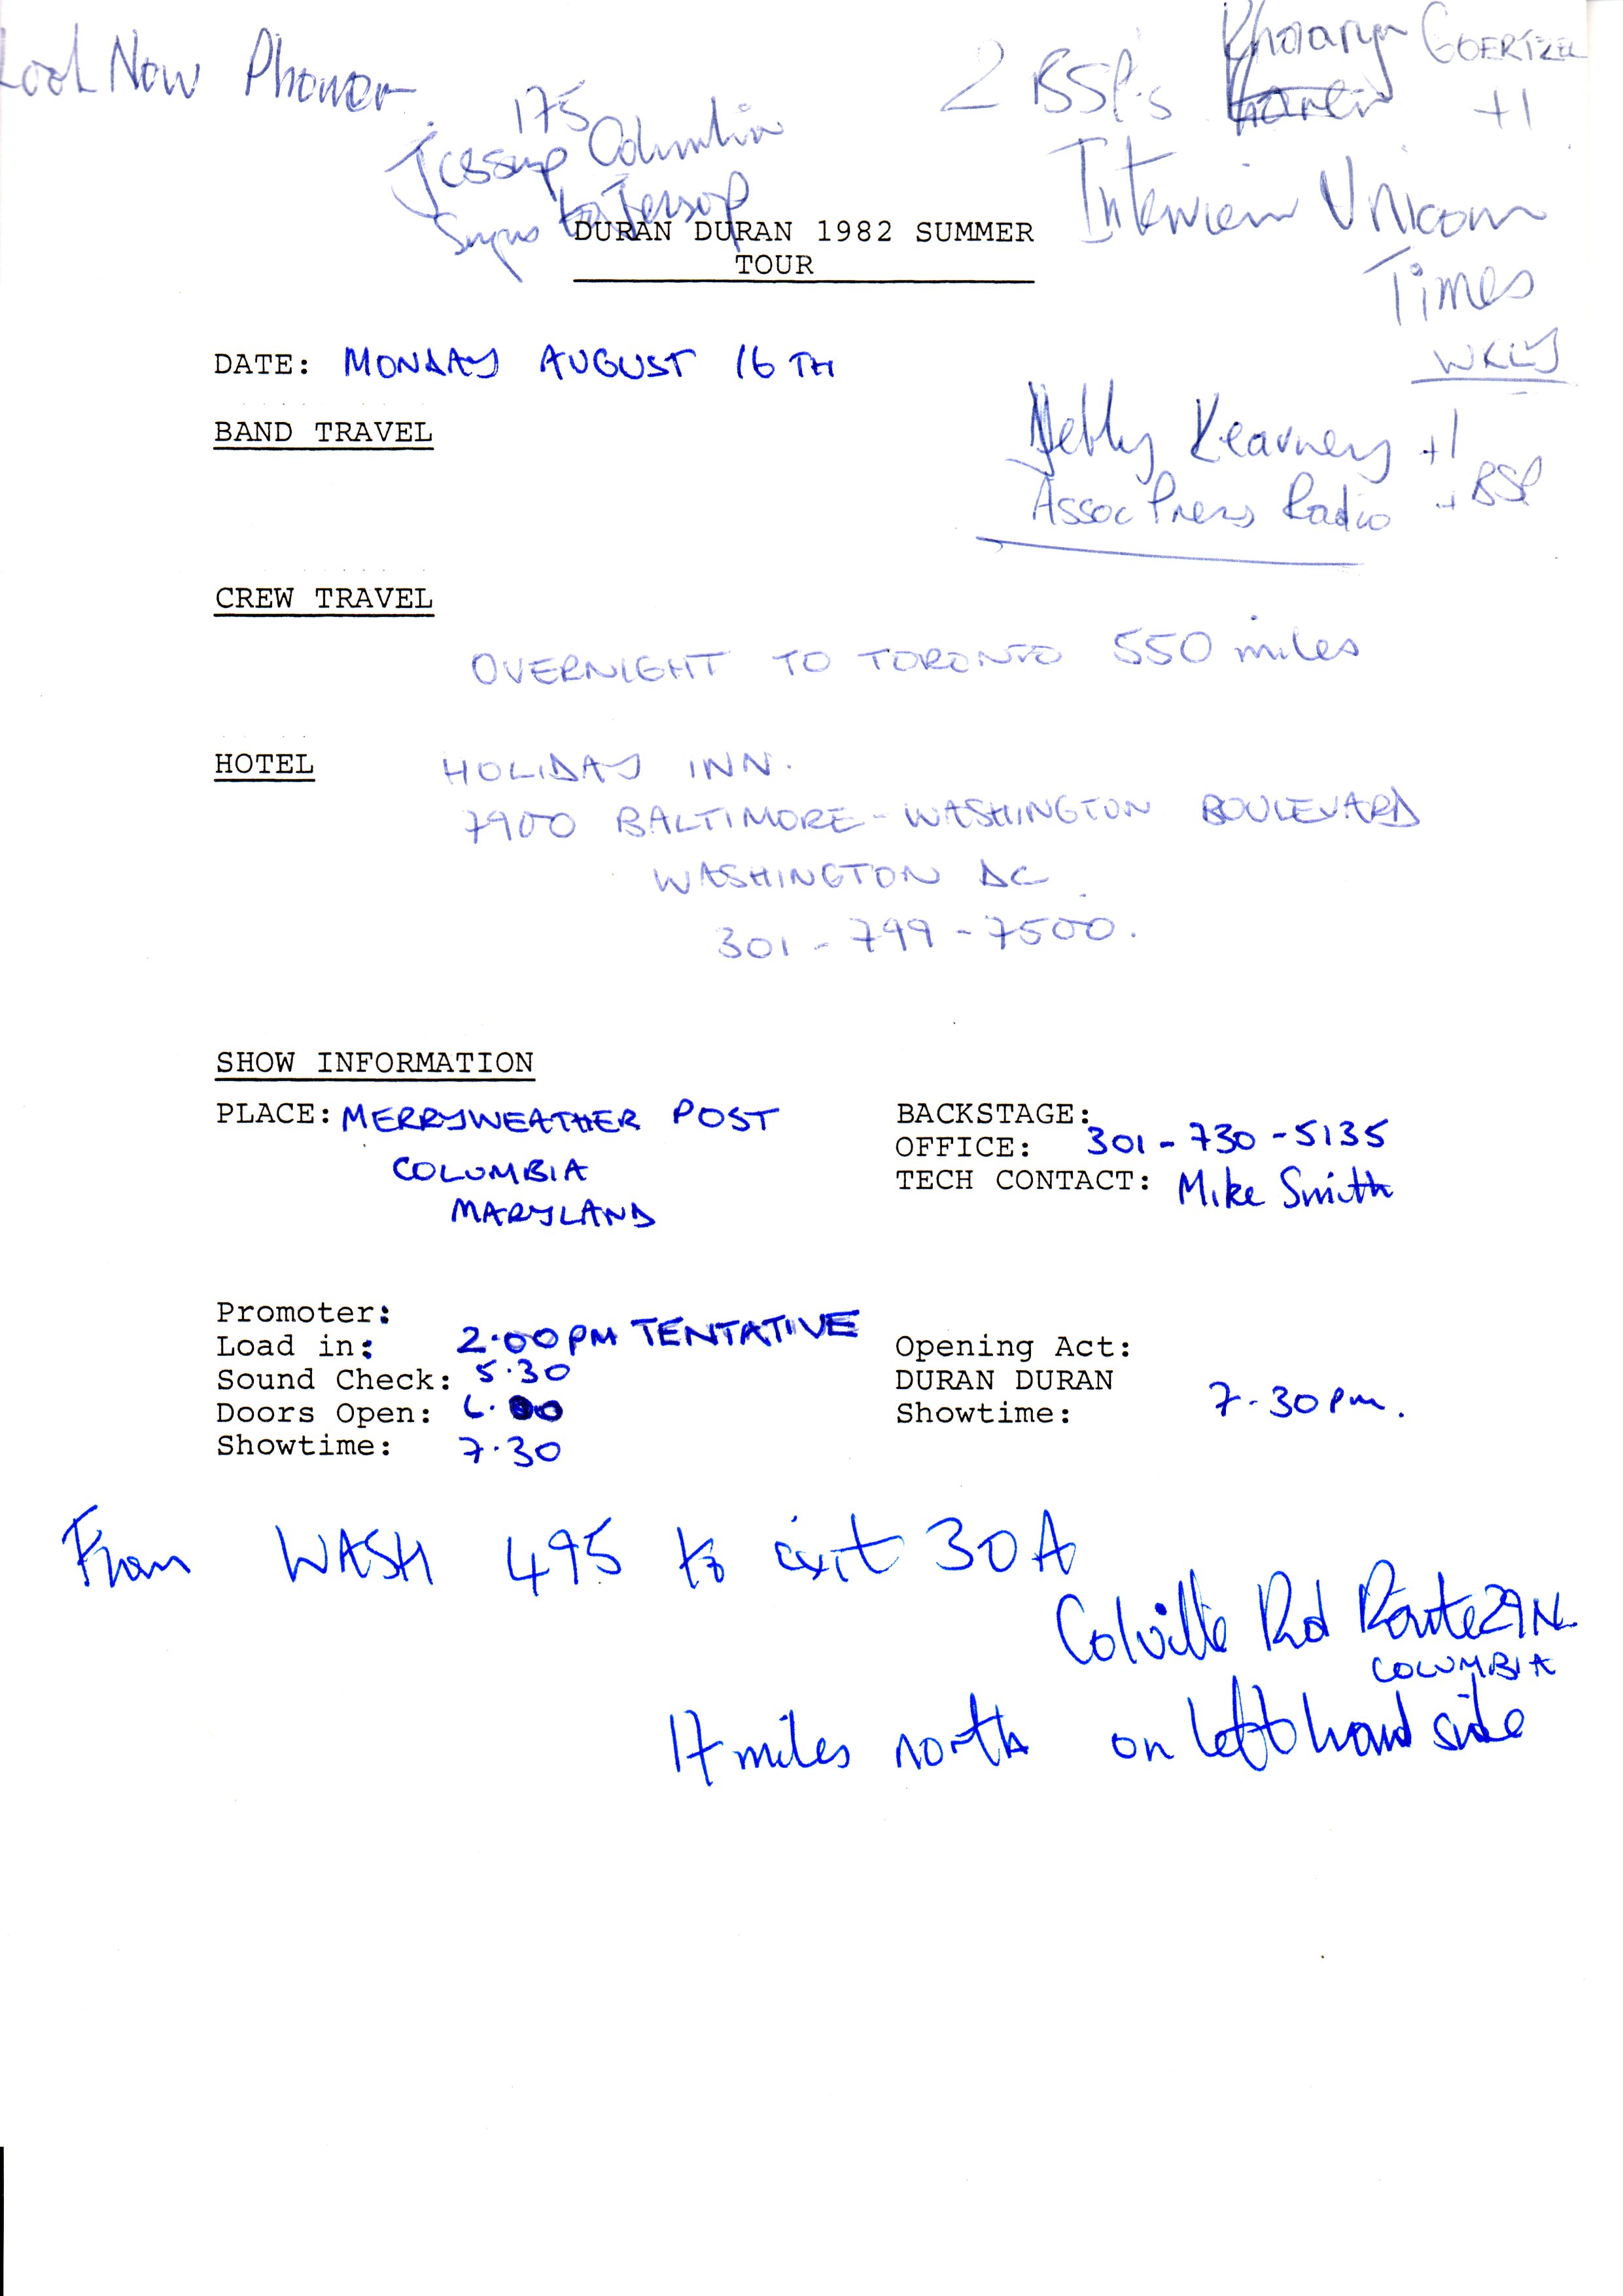 Look Now Phoner
2 BSP's Goertzel
+1
175
Jessup Columbia
Signs to Jessop
Interview Unicorn
Times
WKLY
DURAN DURAN 1982 SUMMER
TOUR
DATE: MONDAY AUGUST 16TH
BAND TRAVEL
Debby Kearney +1
Assoc Press Radio + BSP
CREW TRAVEL
OVERNIGHT TO TORONTO 550 miles
HOTEL HOLIDAY INN.
7900 BALTIMORE-WASHINGTON BOULEVARD
WASHINGTON DC
301-799-7500.
SHOW INFORMATION
PLACE: MERRYWEATHER POST
COLUMBIA
MARYLAND
BACKSTAGE:
OFFICE: 301-730-5135
TECH CONTACT: Mike Smith
Promoter:
Load in: 2.00PM TENTATIVE
Sound Check: 5.30
Doors Open: 6.00
Showtime: 7.30
Opening Act:
DURAN DURAN
Showtime: 7.30pm.
From WASH 495 to exit 30A
Colville Rd Route 29 N
COLUMBIA
17 miles north on left hand side